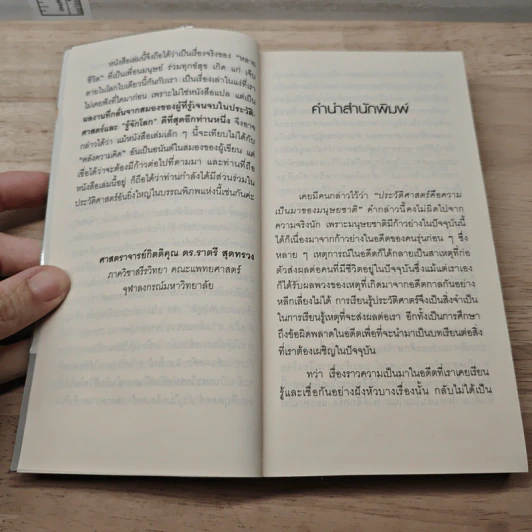 หนังสือเล่มนี้จึงถือได้ว่าเป็นเรื่องจริงของ "หลาย
ชีวิต" ที่เป็นเพื่อนมนุษย์ ร่วมทุกข์สุข เกิด แก่ เจ็บ
ตายในโลกใบเดียวนี้กันกับเรา เป็นเรื่องเล่าในแง่ที่เรา
ไม่เคยฟังที่ใดมาก่อน เพราะไม่ใช่หนังสือแปล แต่เป็น
ผลงานที่กลั่นจากสมองของผู้ที่รู้เจนจบในประวัติ-
ศาสตร์และ "รู้จักโลก" ดีที่สุดอีกท่านหนึ่ง จึงอาจ
กล่าวได้ว่า แม้หนังสือเล่มเล็ก ๆ นี้จะเทียบไม่ได้กับ
"คลังความคิด" อันเป็นอนันต์ในสมองของผู้เขียน แต่
เชื่อได้ว่าจะต้องมีก้าวต่อไปที่ตามมา และท่านที่ถือ
หนังสือเล่มนี้อยู่ ก็ถือได้ว่าท่านกำลังได้มีส่วนร่วมใน
ประวัติศาสตร์อันยิ่งใหญ่ในบรรณพิภพแห่งนี้เช่นกันค่ะ
ศาสตราจารย์กิตติคุณ ดร.ราตรี สุดทรวง
ภาควิชาสรีรวิทยา คณะแพทยศาสตร์
จุฬาลงกรณ์มหาวิทยาลัย
คำนำสำนักพิมพ์
เคยมีคนกล่าวไว้ว่า "ประวัติศาสตร์คือความ
เป็นมาของมนุษยชาติ" คำกล่าวนี้คงไม่ผิดไปจาก
ความจริงนัก เพราะมนุษย์ยังมีก้าวย่างในปัจจุบันนี้
ได้ก็เนื่องมาจากก้าวย่างในอดีตของคนรุ่นก่อน ๆ ซึ่ง
หลาย ๆ เหตุการณ์ในอดีตก็ได้กลายเป็นสาเหตุที่ก่อ
ตัวส่งผลต่อคนที่มีชีวิตอยู่ในปัจจุบันซึ่งแม้แต่เราเอง
ก็ได้รับผลพวงของเหตุที่เกิดมาจากอดีตกาลกันอย่าง
หลีกเลี่ยงไม่ได้ การเรียนรู้ประวัติศาสตร์จึงเป็นสิ่งจำเป็น
ในการเรียนรู้เหตุที่จะส่งผลต่อเรา อีกทั้งเป็นการศึกษา
ถึงข้อผิดพลาดในอดีตเพื่อที่จะนำมาเป็นบทเรียนต่อสิ่ง
ที่เราต้องเผชิญในปัจจุบัน
ทว่า เรื่องราวความเป็นมาในอดีตที่เราเคยเรียน
รู้และเชื่อกันอย่างฝังหัวบางเรื่องนั้น กลับไม่ได้เป็น